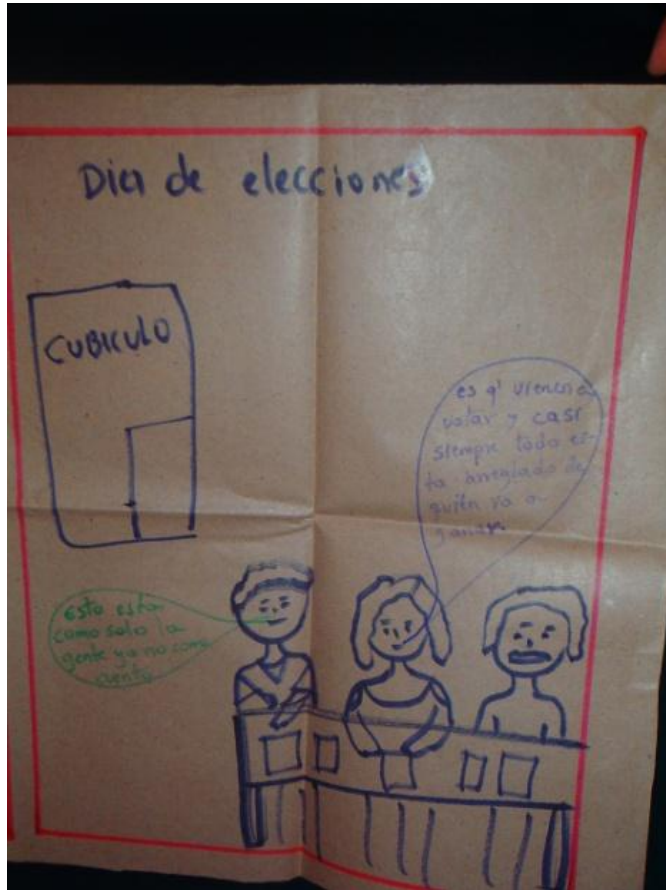 Dia de elecciones
CUBICULO
es q' vienen a
votar y casi
siempre todo es-
ta arreglado de
quién va a
ganar
Esto esta
como solo la
gente ya no come
cuento